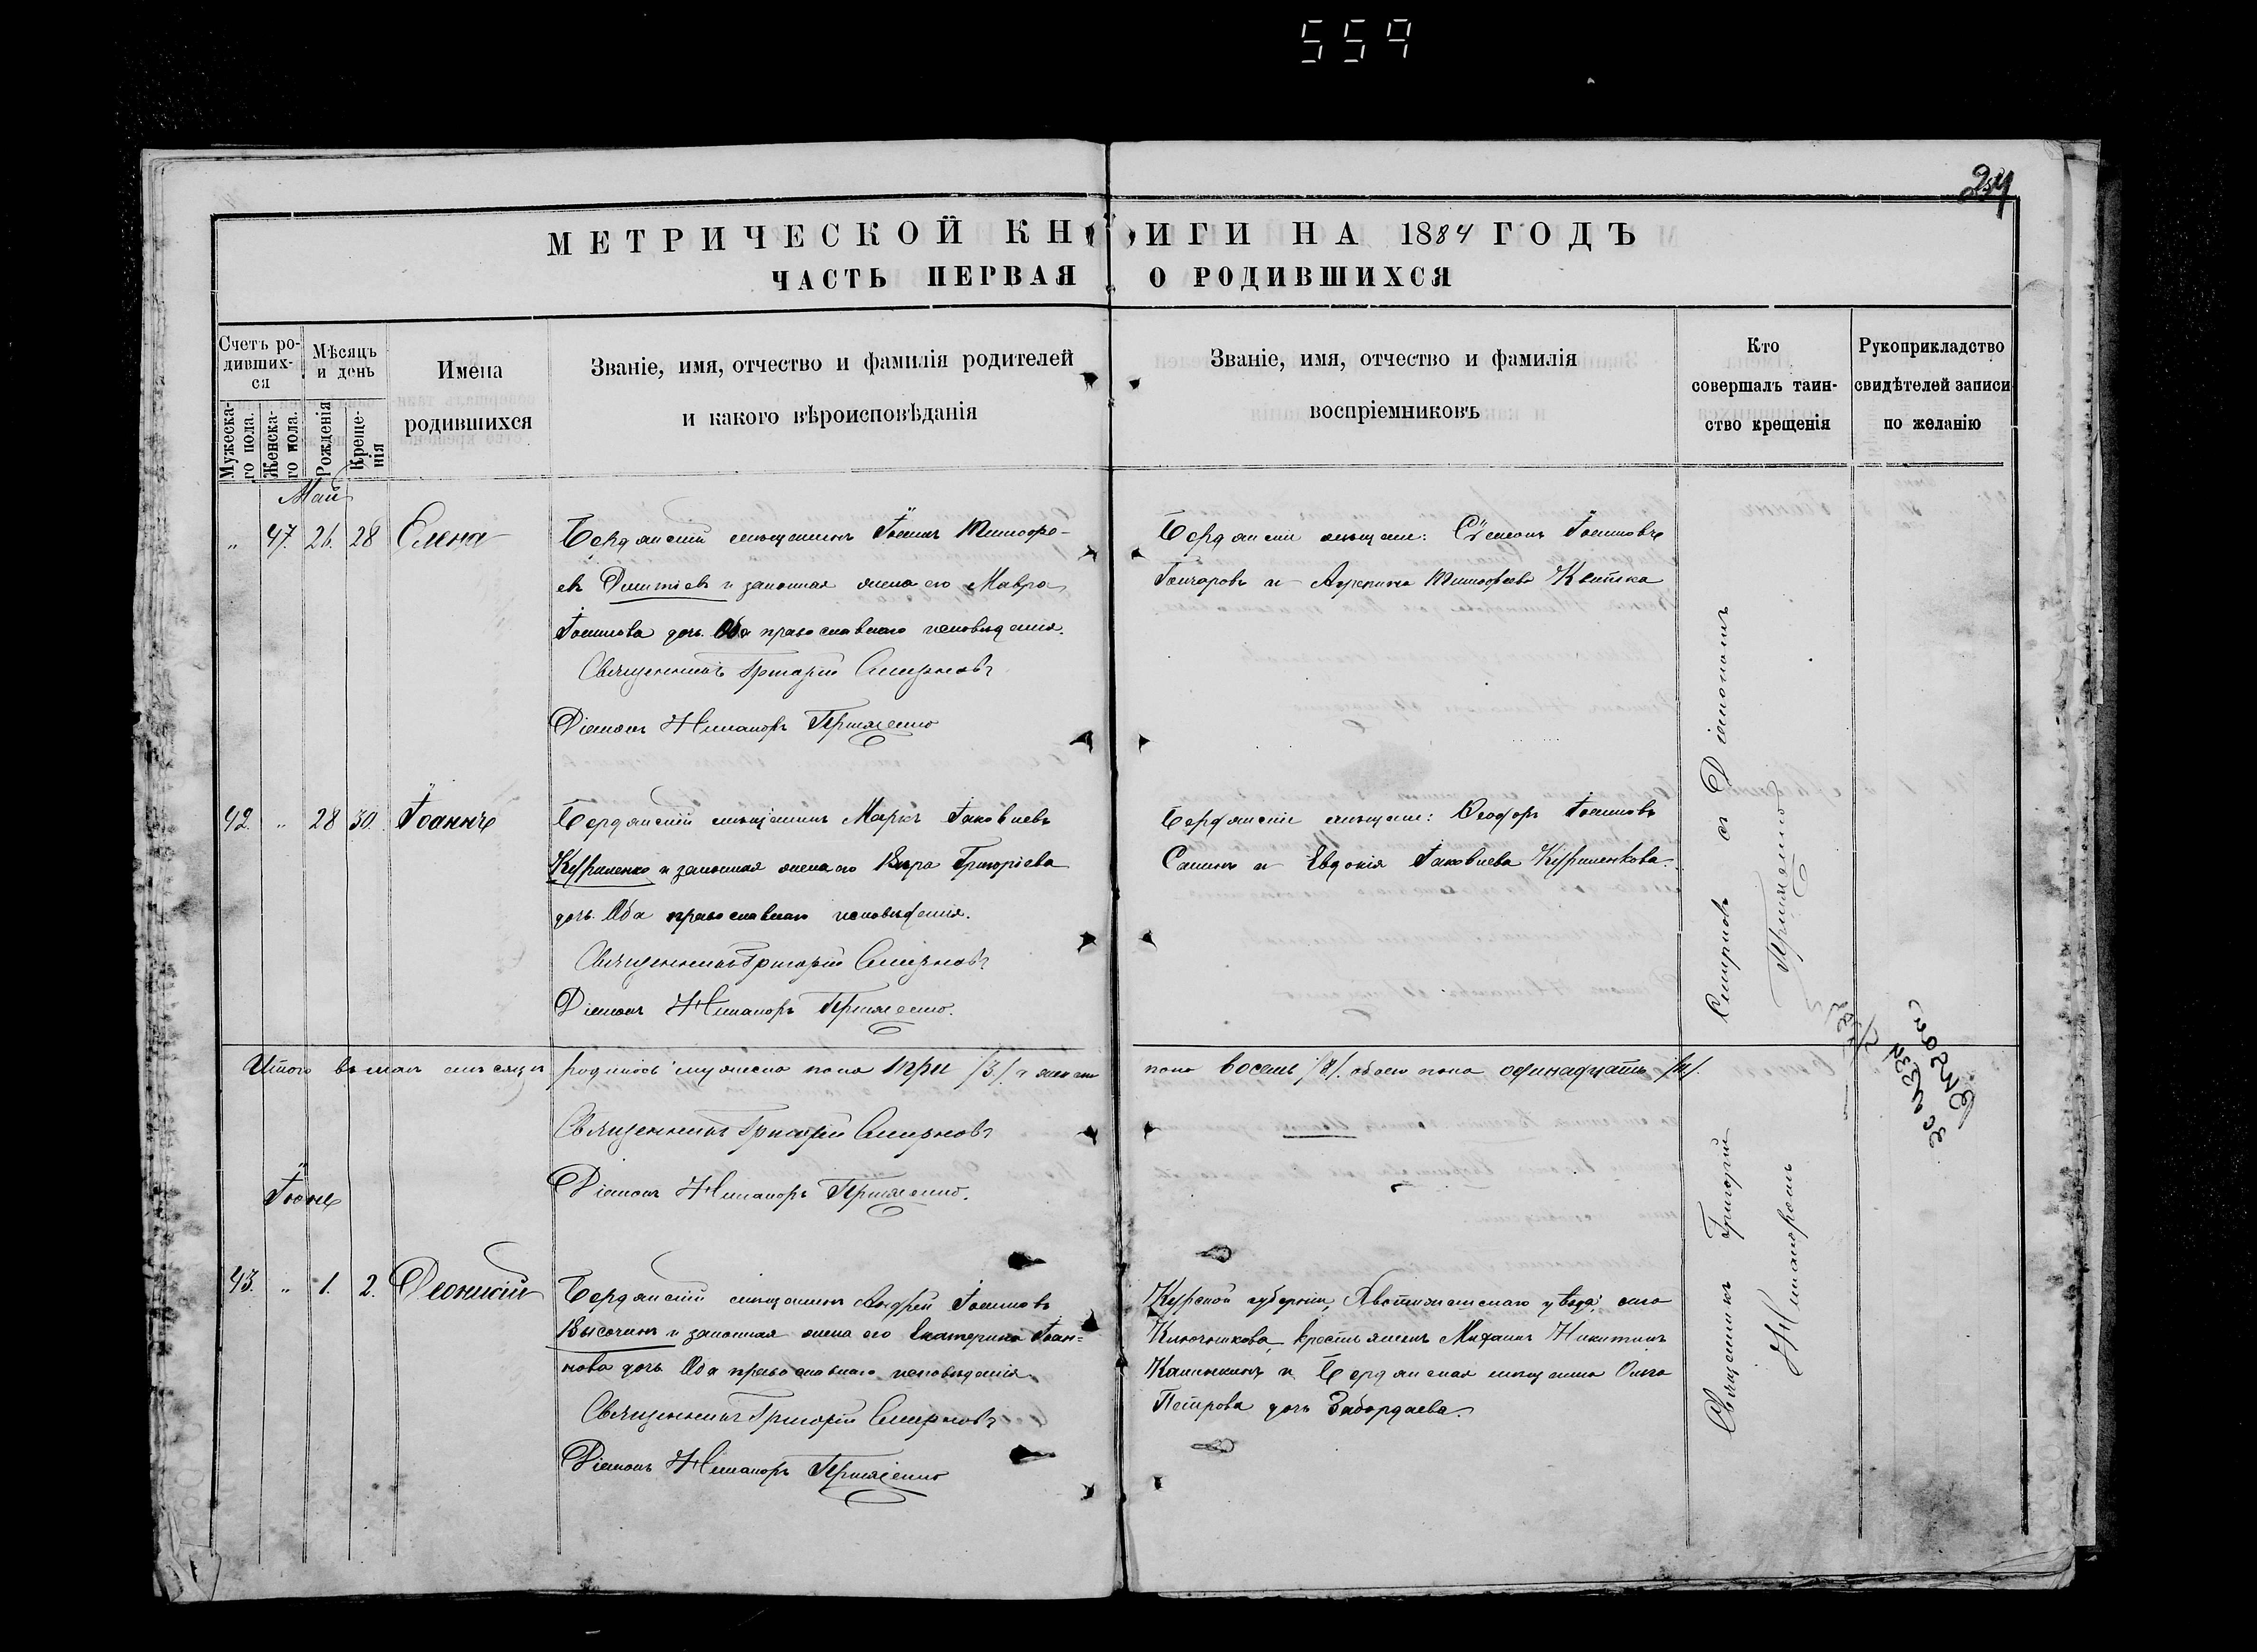 559
234
МЕТРИЧЕСКОЙ КНИГИ НА 1884 ГОДЪ
ЧАСТЬ ПЕРВАЯ О РОДИВШИХСЯ
Счетъ ро-
дивших-
ся
Мужеска-
го пола.
Женска-
го пола.
Мѣсяцъ
и день
Рожденія
Креще-
нія
Имена
родившихся
Званіе, имя, отчество и фамилія родителей
и какого вѣроисповѣданія
Званіе, имя, отчество и фамилія
воспріемниковъ
Кто
совершалъ таин-
ство крещенія
Рукоприкладство
свидѣтелей записи
по желанію
Май
„ 47. 26. 28 Елена
Бердянскій мѣщанинъ Іоаннъ Тимофе-
евъ и законная жена его Мавра
Іоаннова дочь. Оба православнаго исповѣданія.
Священникъ Григорій Смирновъ
Діаконъ Никаноръ
Бердянскіе мѣщане: Сѵмеонъ Іоанновъ
Гончаровъ и Агрепина Тимофеева Квитка
42. „ 28 30. Іоаннъ
Бердянскій мѣщанинъ Маркъ Іаковлевъ
Куриленко и законная жена его Вѣра Григоріева
дочь. Оба православнаго исповѣданія.
Священникъ Григорій Смирновъ
Діаконъ Никаноръ
Бердянскіе мѣщане: Ѳеодоръ Іоанновъ
и Евдокія Іаковлева Куриленкова.
Итого въ маѣ мѣсяцѣ родилось мужеска пола три /3/. и женска
пола восемь /8/. обоего пола одинадцать /11/.
Священникъ Григорій Смирновъ
Діаконъ Никаноръ
Іюнь
43. „ 1. 2. Леонтій
Бердянскій мѣщанинъ Андрей Іоанновъ
Высочинъ и законная жена его Екатерина Іоан-
нова дочь Оба православнаго исповѣданія.
Священникъ Григорій Смирновъ
Діаконъ Никаноръ
Курской губерніи, уѣзда, села
Ключникова, крестьянинъ Михаилъ Никитинъ
Калинкинъ и Бердянская мѣщанка Ольга
Петрова дочь
Священникъ Григорій Смирновъ съ Діакономъ
Никаноромъ